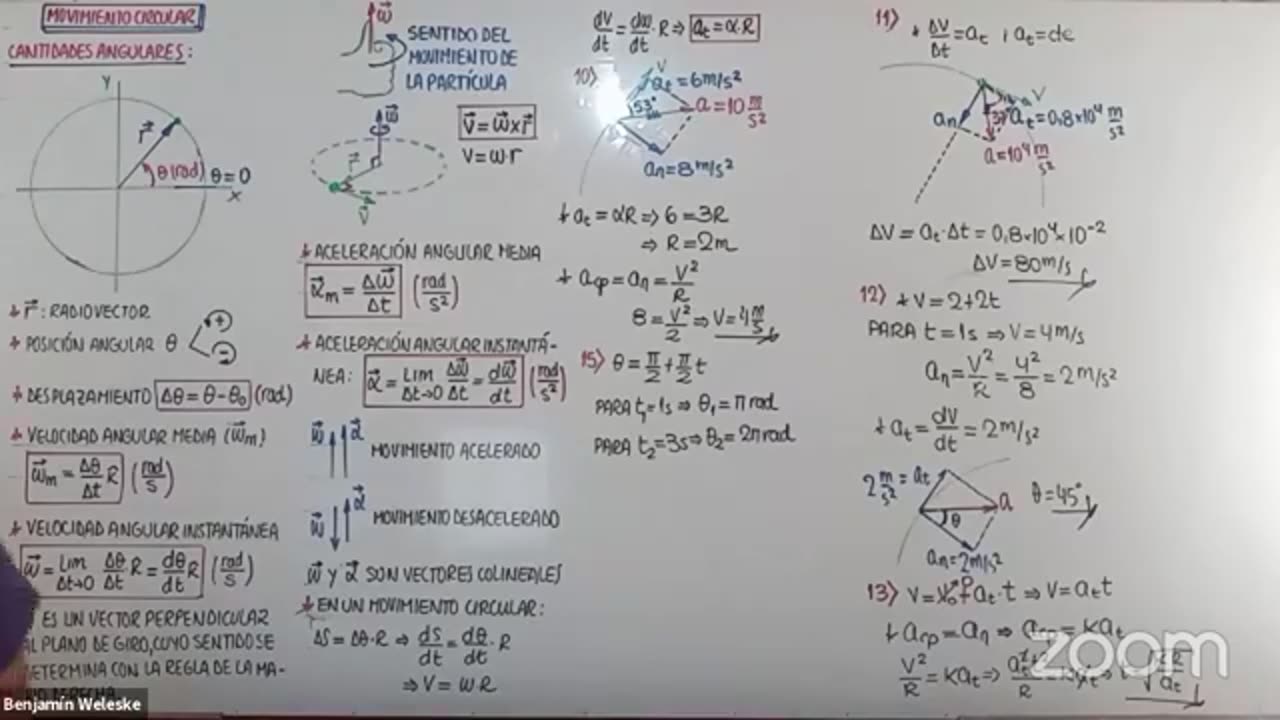 MOVIMIENTO CIRCULAR
CANTIDADES ANGULARES:
Y
r⃗
θ(rad)
θ=0
X
+ r⃗: RADIOVECTOR
+ POSICIÓN ANGULAR θ
(+)
(-)
+ DESPLAZAMIENTO Δθ = θ - θ₀ (rad)
+ VELOCIDAD ANGULAR MEDIA (ω⃗m)
ω⃗m = Δθ/Δt R (rad/s)
+ VELOCIDAD ANGULAR INSTANTÁNEA
ω⃗ = Lim Δt→0 Δθ/Δt R = dθ/dt R (rad/s)
ES UN VECTOR PERPENDICULAR
AL PLANO DE GIRO, CUYO SENTIDO SE
DETERMINA CON LA REGLA DE LA MA-
NO DERECHA
ω⃗
SENTIDO DEL
MOVIMIENTO DE
LA PARTÍCULA
ω⃗
r⃗
v⃗
v⃗ = ω⃗ x r⃗
V = ω·r
+ ACELERACIÓN ANGULAR MEDIA
α⃗m = Δω⃗/Δt (rad/s²)
+ ACELERACIÓN ANGULAR INSTANTÁ-
NEA: α⃗ = Lim Δt→0 Δω⃗/Δt = dω⃗/dt (rad/s²)
ω⃗ α⃗ MOVIMIENTO ACELERADO
ω⃗ α⃗ MOVIMIENTO DESACELERADO
ω⃗ y α⃗ SON VECTORES COLINEALES
+ EN UN MOVIMIENTO CIRCULAR:
ΔS = Δθ·R ⇒ dS/dt = dθ/dt · R
⇒ V = ωR
dV/dt = dω/dt · R ⇒ at = α·R
10)
V
at = 6m/s²
53°
a = 10 m/s²
an = 8m/s²
+ at = αR ⇒ 6 = 3R
⇒ R = 2m
+ acp = an = V²/R
8 = V²/2 ⇒ V = 4 m/s
15) θ = π/2 + π/2 t
PARA t₁=1s ⇒ θ₁ = π rad
PARA t₂=3s ⇒ θ₂ = 2π rad
11) + ΔV/Δt = at ; at = cte
V
an
37°
at = 0,8×10⁴ m/s²
a = 10⁴ m/s²
ΔV = at·Δt = 0,8×10⁴×10⁻²
ΔV = 80m/s
12) + V = 2+2t
PARA t = 1s ⇒ V = 4m/s
an = V²/R = 4²/8 = 2m/s²
+ at = dV/dt = 2m/s²
2 m/s² = at
a
θ
θ = 45°
an = 2m/s²
13) V = V₀ + at·t ⇒ V = at t
+ acp = an ⇒ acp = Kat
V²/R = Kat ⇒
zoom
Benjamín Weleske